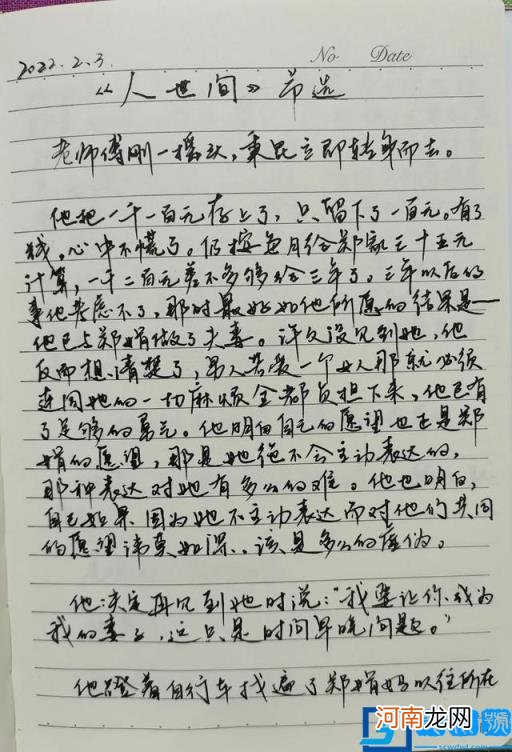 2022.2.3.
No Date
《人世间》节选
老师傅刚一摇头,秉昆立即转身而去。
他把一千一百元存上了,只留下了一百元。有了
钱,心中不慌了。仍按每月给郑家三十五元
计算,一千二百元差不多够给三年了。三年以后的
事他考虑不了,那时最好如他所愿的结果是——
他已与郑娟做了夫妻。许久没见到她,他
反而想清楚了,男人若爱一个女人那就必须
连同她的一切麻烦全都负担下来,他已有
了足够的勇气。他明白自己的愿望也正是郑
娟的愿望,那是她绝不会主动表达的,
那种表达对她有多么的难。他也明白,
自己如果因为她不主动表达而对他的共同
的愿望讳莫如深,该是多么的虚伪。
他决定再见到她时说:“我要让你成为
我的妻子,这只是时间早晚问题。”
他蹬着自行车找遍了郑娟妈以往所在
河南龙网